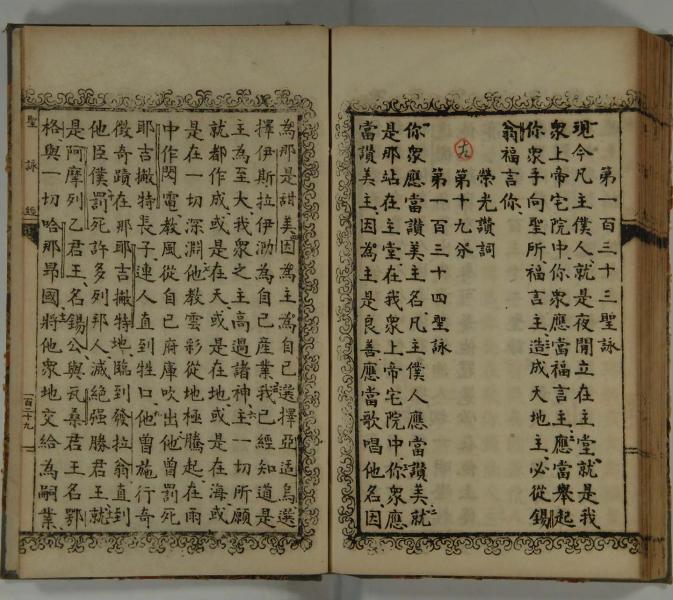 第一百三十三聖詠
現今凡主僕人就是夜間立在主堂就是我
衆上帝宅院中你衆應當福言主應當舉起
你衆手向聖所福言主造成天地主必從錫
翁福言你
榮光讚詞
十九
第十九分
第一百三十四聖詠
你衆應當讚美主名凡主僕人應當讚美就
是那站在主堂在我衆上帝宅院中你衆應
當讚美主因為主是良善應當歌唱他名因
為那是甜美因為主為自己選擇亞适烏選
擇伊斯拉伊泐為自己産業我已經知道是
主為至大我衆之主高過諸神主一切所願
就都作成或是在天或是在地或是在海或
是在一切深淵他教雲彩從地極騰起在雨
中作閃電教風從自己府庫吹出他曾罰死
耶吉撇特長子連人直到牲口他曾施行奇
徵奇蹟在那耶吉撇特地臨到發拉翁直到
他臣僕罰死許多列邦人滅絕強勝君王就
是阿摩列乙君王名錫公與瓦桑君王名鄂
格與一切哈那昻國將他衆地交給為嗣業
聖詠經
一百二十九